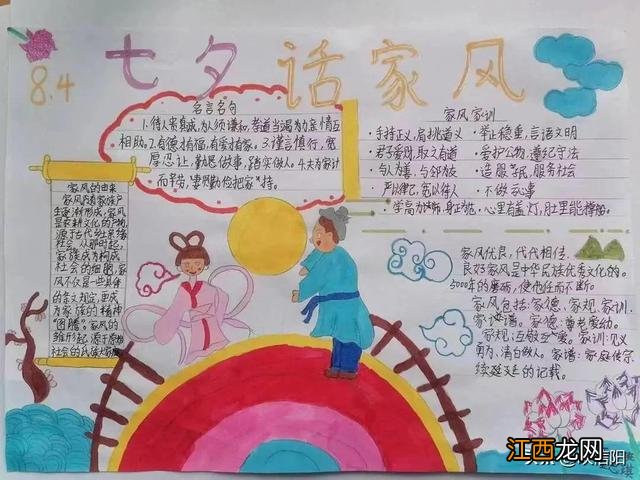 8.4
七夕话家风
名言名句
1.待人贵真诚,为人须谦和,孝道当竭力,亲情互
相助。2.有德有福,有爱有家。3.谨言慎行,宽
厚忍让,勤思做事,踏实做人。4.夫为家计
持。
家风家训
·手持正义,肩挑道义
·君子爱财,取之有道
·与人为善,与邻为友
严以律己,宽以待人
·学高为师,身正为范
·举止稳重,言语文明
·爱护公物,遵纪守法
·造服民,服务社会
·不做亏心事
·心里有盏灯,肚里能撑船。
家风的由来
家风随着家族产
生逐渐形成,家风
是农耕文化的产物,
源于古代乡土宗族
社会。从那时起,
家族成为构成
社会的细胞,家
风不仅是一些具体
的条文规定,更成
为家族的精神
“图腾”。家风的
雏形起源于原始
社会的氏族大家庭
家风优良,代代相传
良好家风是中华民族优秀文化的。
5000年的磨砺,使他任而不断。
家风包括:家德、家规、家训、
家谱。家德:尊老爱幼。
家规:互敬互爱。家训:见义
勇为、清白做人。家谱:家庭传宗
续延延的记载。
江西龙网